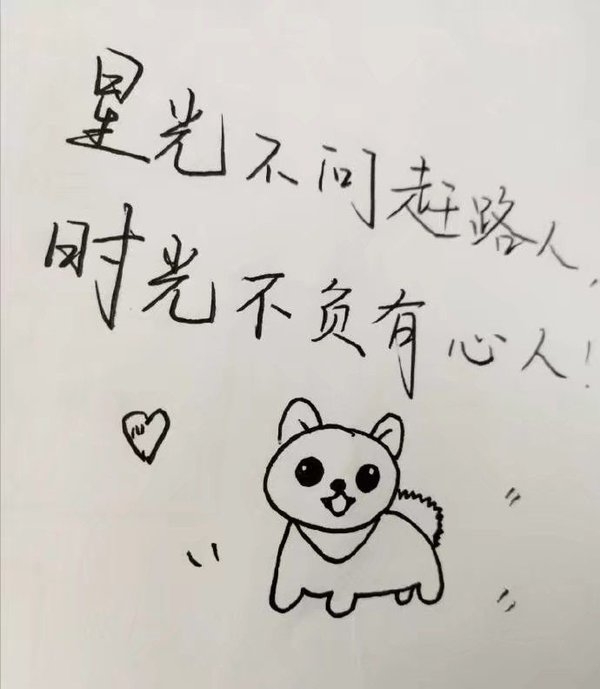 星光不问赶路人,
时光不负有心人!